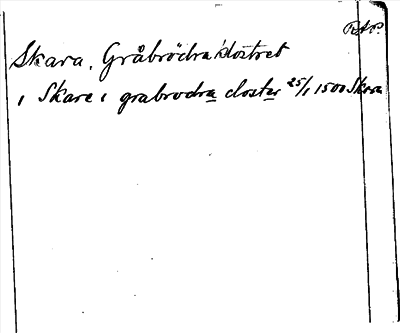 RAp?
Skara. Gråbrödraklostret
i Skare i grabrodra closter 25/1 1500 Skara